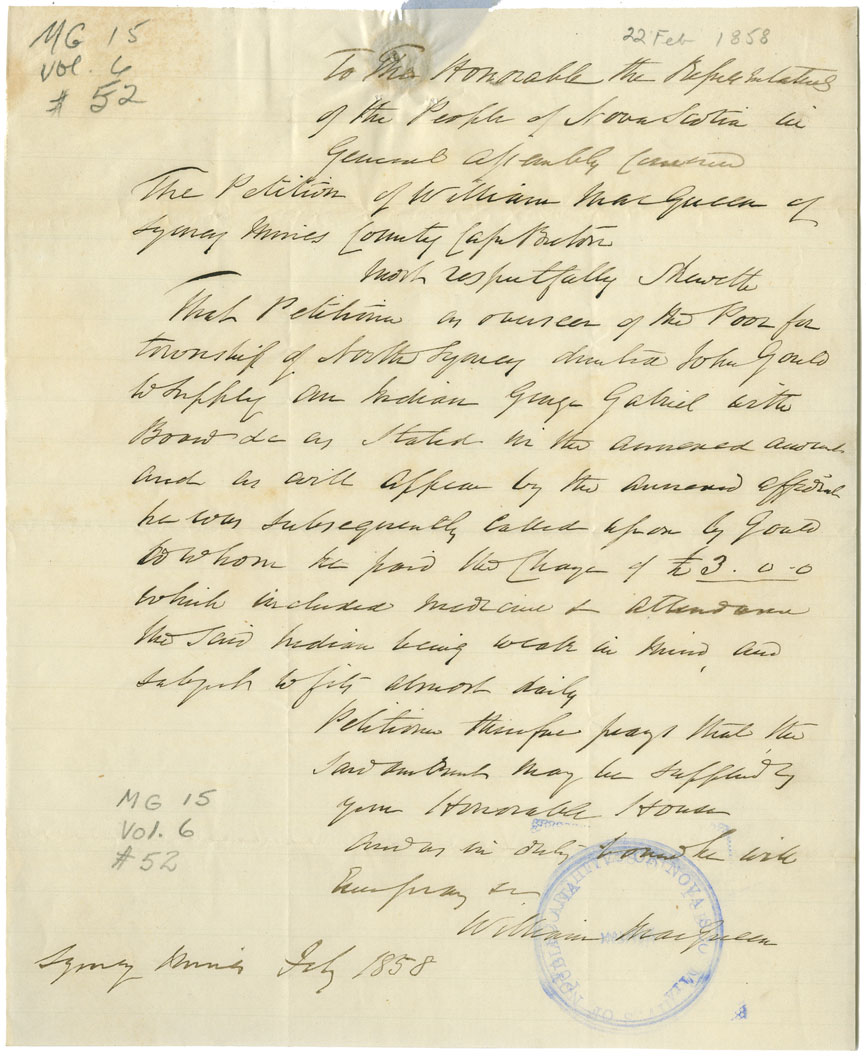 MG 15
Vol. 6
# 52
22 Feb 1858
To The Honorable the Representatives
of the People of Nova Scotia in
General Assembly Convened
The Petition of William MacQueen of
Sydney Mines County Cape Breton
Most respectfully Sheweth
That Petitioner as overseer of the Poor for
township of North Sydney directed John Gould
to supply an Indian George Gabriel with
Board &c as Stated in the annexed account
and as will appear by the annexed affidavit
he was subsequently called upon by Gould
to whom he paid the Charge of £3. 0-0
which included medicine & attendance
the said Indian being weak in mind and
subject to fits almost daily
Petitioner therefore prays that the
said amount may be supplied by
your Honorable House
and as in duty bound he will
Ever pray &c
William MacQueen
Sydney Mines Feby 1858
MG 15
Vol. 6
#52
PUBLIC ARCHIVES OF NOVA SCOTIA